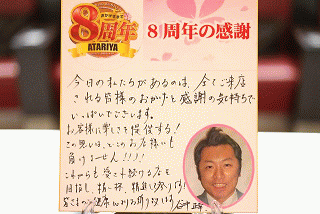 おかげさまで
8周年
ATARIYA
8周年の感謝
今日の私たちがあるのは、全てご来店
される皆様のおかげと感謝の気持ちで
いっぱいでございます。
お客様に楽しさを提供する!
この思いは、どこのお店様にも
負けません!!!!
これからも愛され続ける店を
目指し、精一杯、精進して参ります!
皆さまの健康